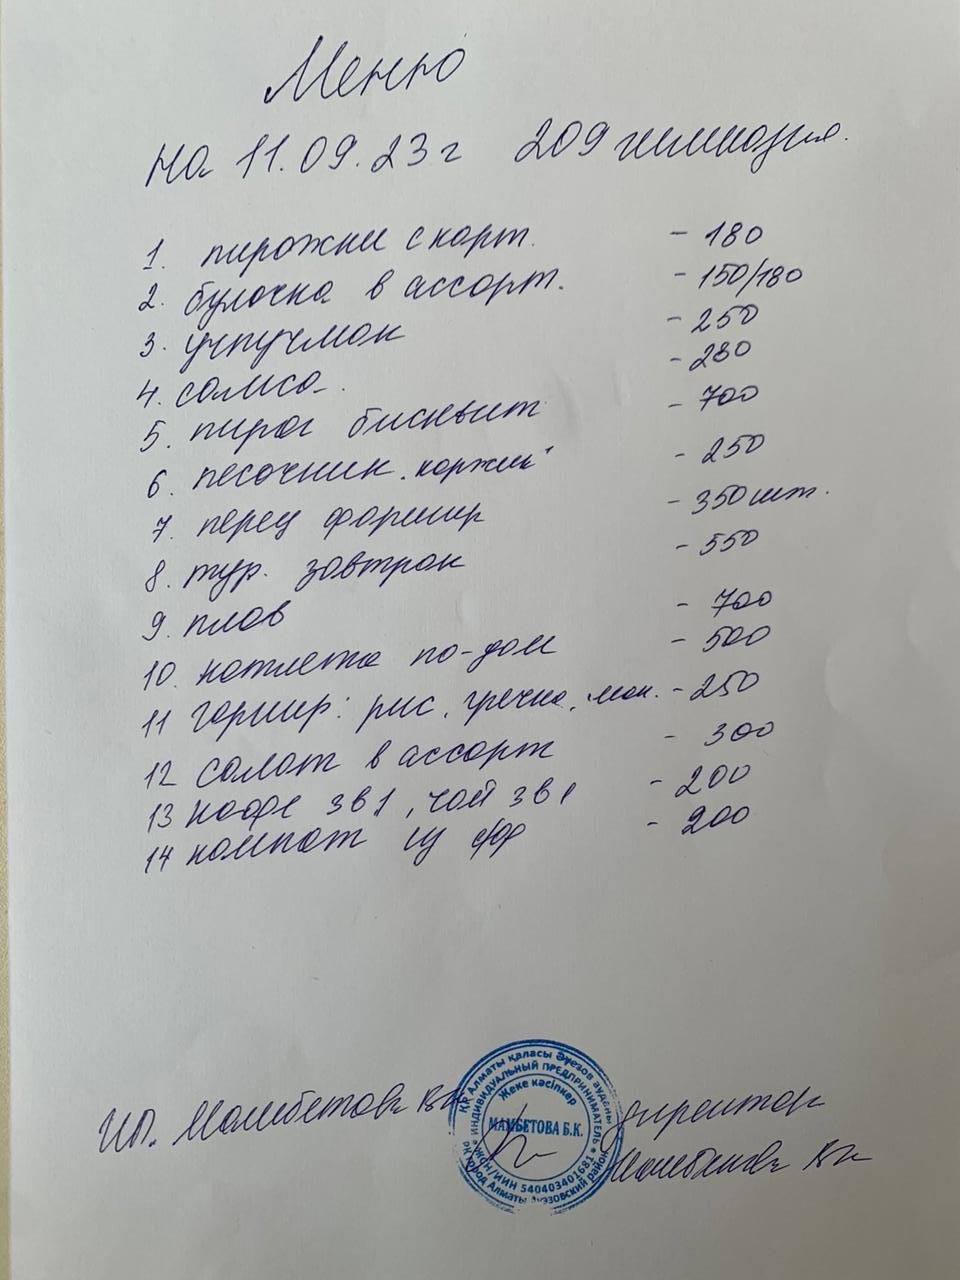 Меню
на 11.09.23 г 209 гимназия.
1. пирожки с карт. - 180
2. булочка в ассорт. - 150/180
3. учпучмак - 250
4. самса. - 280
5. пирог бисквит - 700
6. песочник "коржик" - 250
7. перец фаршир - 350 шт.
8. тур. завтрак - 550
9. плов - 700
10. котлета по-дом - 500
11 гарнир: рис, гречка, мак. - 250
12 салат в ассорт - 300
13 кофе 3в1, чай 3в1 - 200
14 компот из с/фр - 200
ҚР Алматы қаласы Әуезов ауданы
ИНДИВИДУАЛЬНЫЙ ПРЕДПРИНИМАТЕЛЬ
Жеке кәсіпкер
МАМБЕТОВА Б.К.
ЖСН/ИИН 540403401681
РК город Алматы Ауэзовский район
ИП. Мамбетова БК
директор
Мамбетова БК